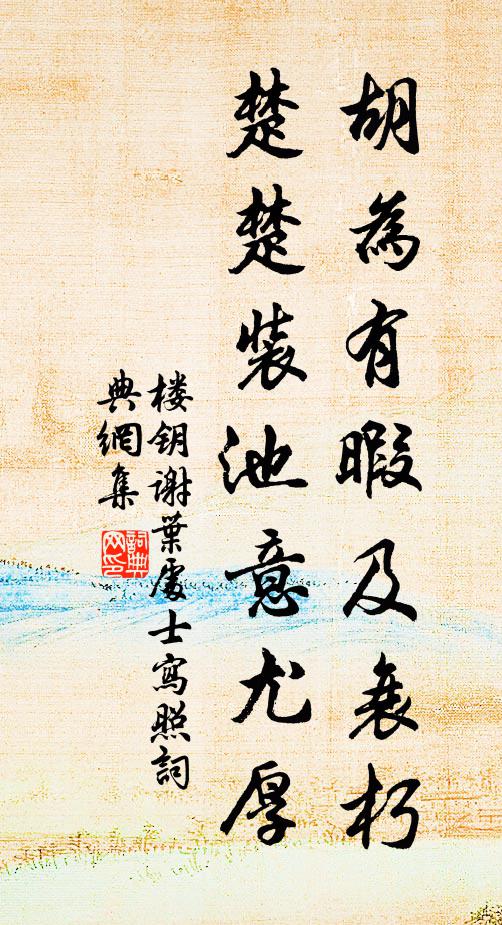 胡為有暇及衰朽
楚楚裝池意尤厚
楼钥谢葉處士寫照詞
典網集
詞典网印